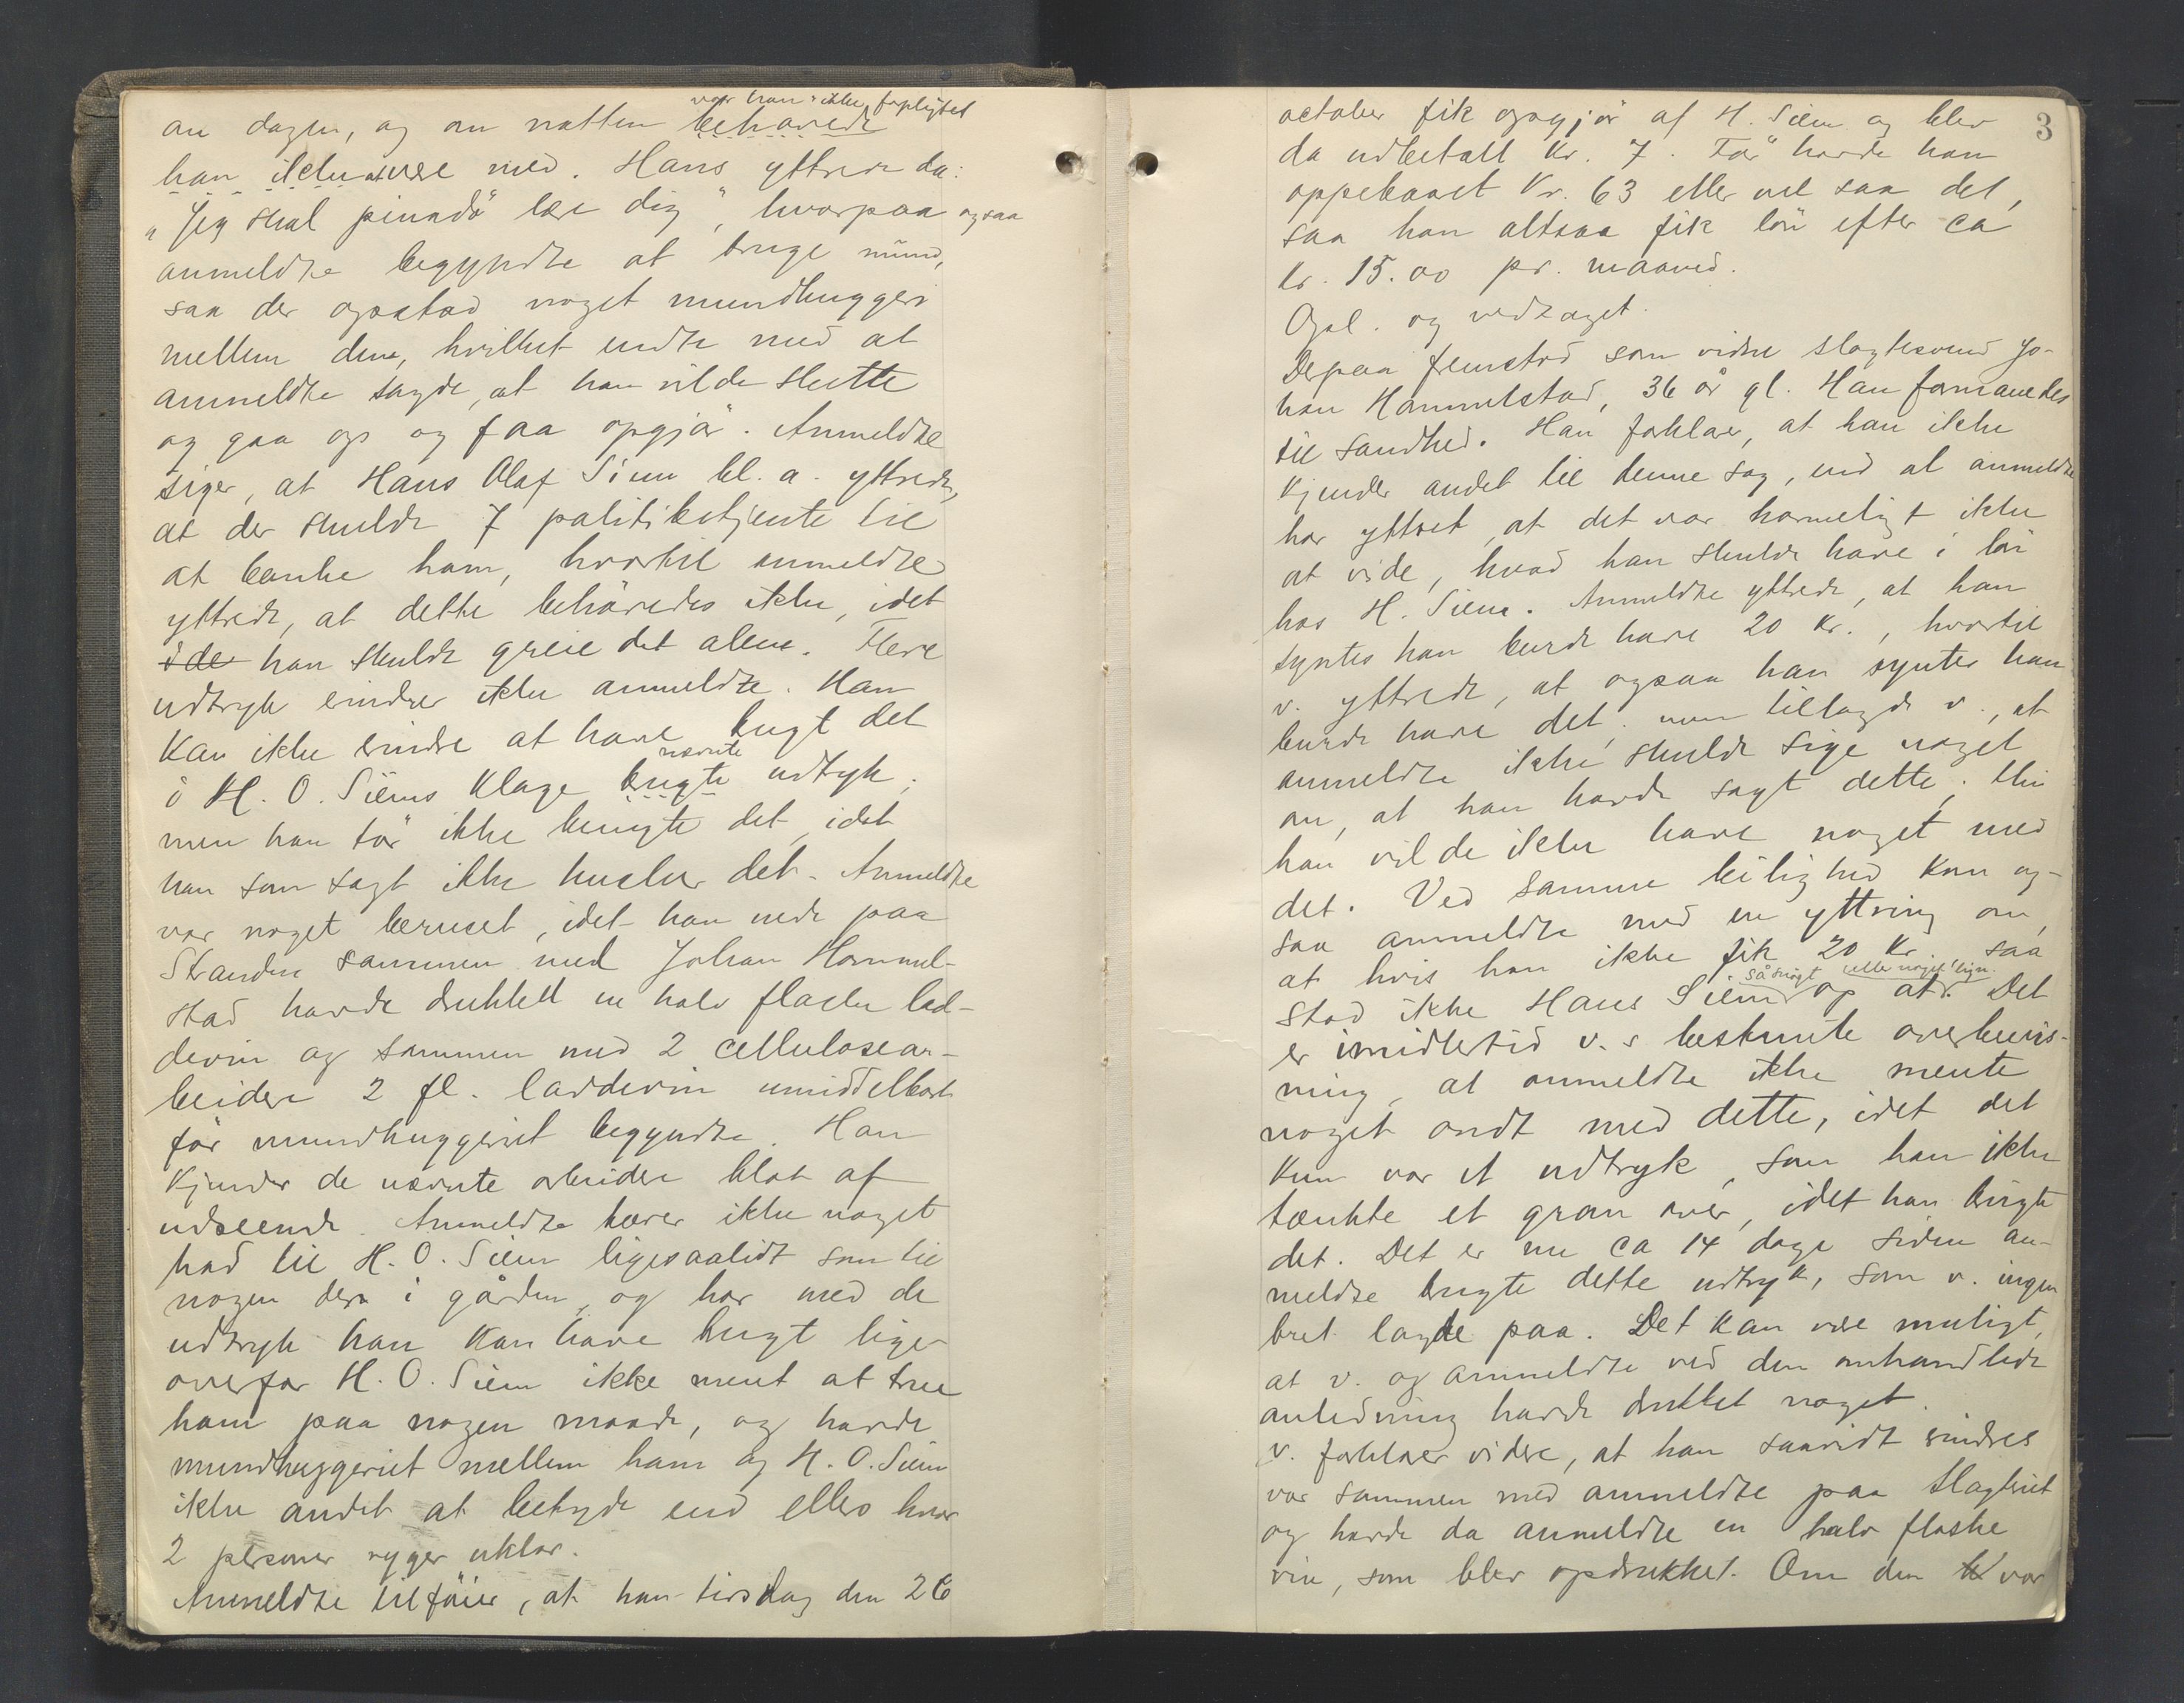 om dagen, og om natten behøvede var han ikke forpligtet
han ikke at være med. Hans yttrer da:
"Jeg skal pinnadö lære dig", hvorpaa ogsaa
anmeldte begyndte at bruge mund,
saa der opstod noget mundhuggeri
mellem dem, hvilket endte med at
anmeldte sagde, at han vilde slutte
og gaa op og faa opgjør. Anmeldte
siger, at Hans Olaf Siem bl. a. yttrede,
at der skulde 7 politibetjente til
at banke ham, hvortil anmeldte
yttrede, at dette behøvedes ikke, idet
ide han skulde greie det alene. Flere
udtryk erindrer ikke anmeldte. Han
kan ikke erindre at have brugt det
i H. O. Siems klage brugte nævnte udtryk,
men han tør ikke benegte det, idet
han som sagt ikke husker det. Anmeldte
var noget beruset, idet han nede paa
Stranden sammen med Johan Hammel-
stad havde drukket en halv flaske lad-
devin og sammen med 2 cellulosear-
beidere 2 fl. laddevin umiddelbart
før mundhuggeriet begyndte. Han
kjender de nævnte arbeidere blot af
udseende. Anmeldte bærer ikke noget
had til H. O. Siem ligesaalidt som til
nogen der i gården, og har med de
udtryk han kan have brugt lige-
overfor H. O. Siem ikke ment at true
ham paa nogen maade, og havde
mundhuggeriet mellem ham og H. O. Siem
ikke andet at betyde end ellers hvor
2 personer ryger uklar.
Anmeldte tilføier, at han tirsdag den 26
3
october fik opgjør af H. Siem og blev
da udbetalt Kr. 7. Før havde han
oppebaaret Kr. 63 eller vel saa det,
saa han altsaa fik løn efter ca
Kr. 15.00 pr. maaned.
Opl. og vedtaget.
Derpaa fremstod som vidne slagtersvend Jo-
han Hammelstad, 36 år gl. Han formanedes
til sandhed. Han forklarer, at han ikke
kjender andet til denne sag, end at anmeldte
har yttret, at det var harmeligt ikke
at vide, hvad han skulde have i løn
hos H. Siem. Anmeldte yttrede, at han
syntes han burde have 20 kr., hvortil
v. yttrede, at ogsaa han syntes han
burde have det, men tillagde v., at
anmeldte ikke skulde sige noget
om, at han havde sagt dette, thi
han vilde ikke have noget med
det. Ved samme leilighed kom og-
saa anmeldte med en yttring om,
at hvis han ikke fik 20 kr. saa
stod ikke Hans Siem så snögt op att eller noget lign. Det
er imidlertid v.s bestemte overbevis-
ning, at anmeldte ikke mente
noget ondt med dette, idet det
kun var et udtryk, som han ikke
tænkte et gran over, idet han brugte
det. Det er nu ca 14 dage siden an-
meldte brugte dette udtryk, som v. ingen
bret lagde paa. Det kan være muligt,
at v. og anmeldte ved den omhandlede
anledning havde drukket noget.
v. forklarer videre, at han saavidt erindres
var sammen med anmeldte paa slagteriet
og havde da anmeldte en halv flaske
vin, som blev opdrukket. Om den var